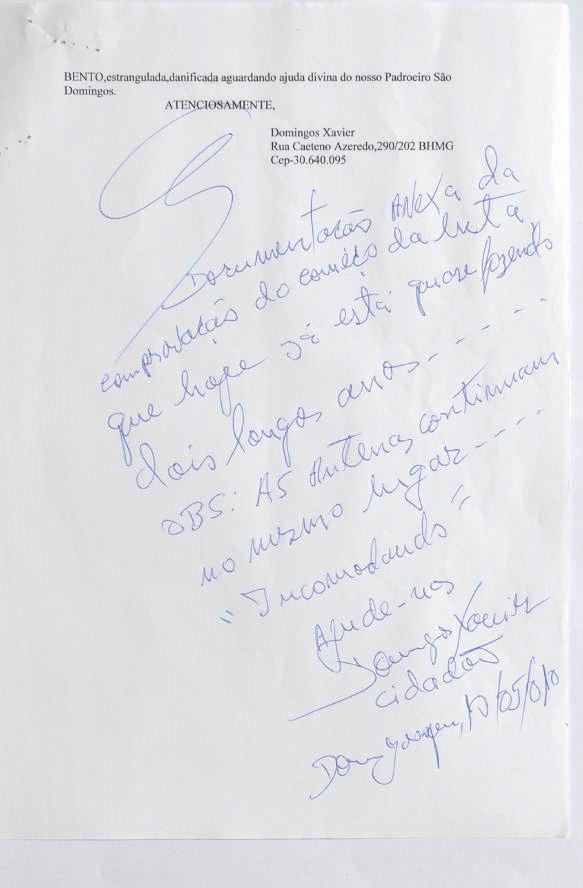 BENTO,estrangulada,danificada aguardando ajuda divina do nosso Padroeiro São
Domingos.
ATENCIOSAMENTE,
Domingos Xavier
Rua Caeteno Azeredo,290/202 BHMG
Cep-30.640.095
Documentação Anexa da
comprovação do começo da luta
que hoje já está quase fazendo
dois longos anos - - - - -
OBS: AS Antenas continuam
no mesmo lugar - - - -
"Incomodando"
Ajude-nos
Domingos Xavier
cidadão